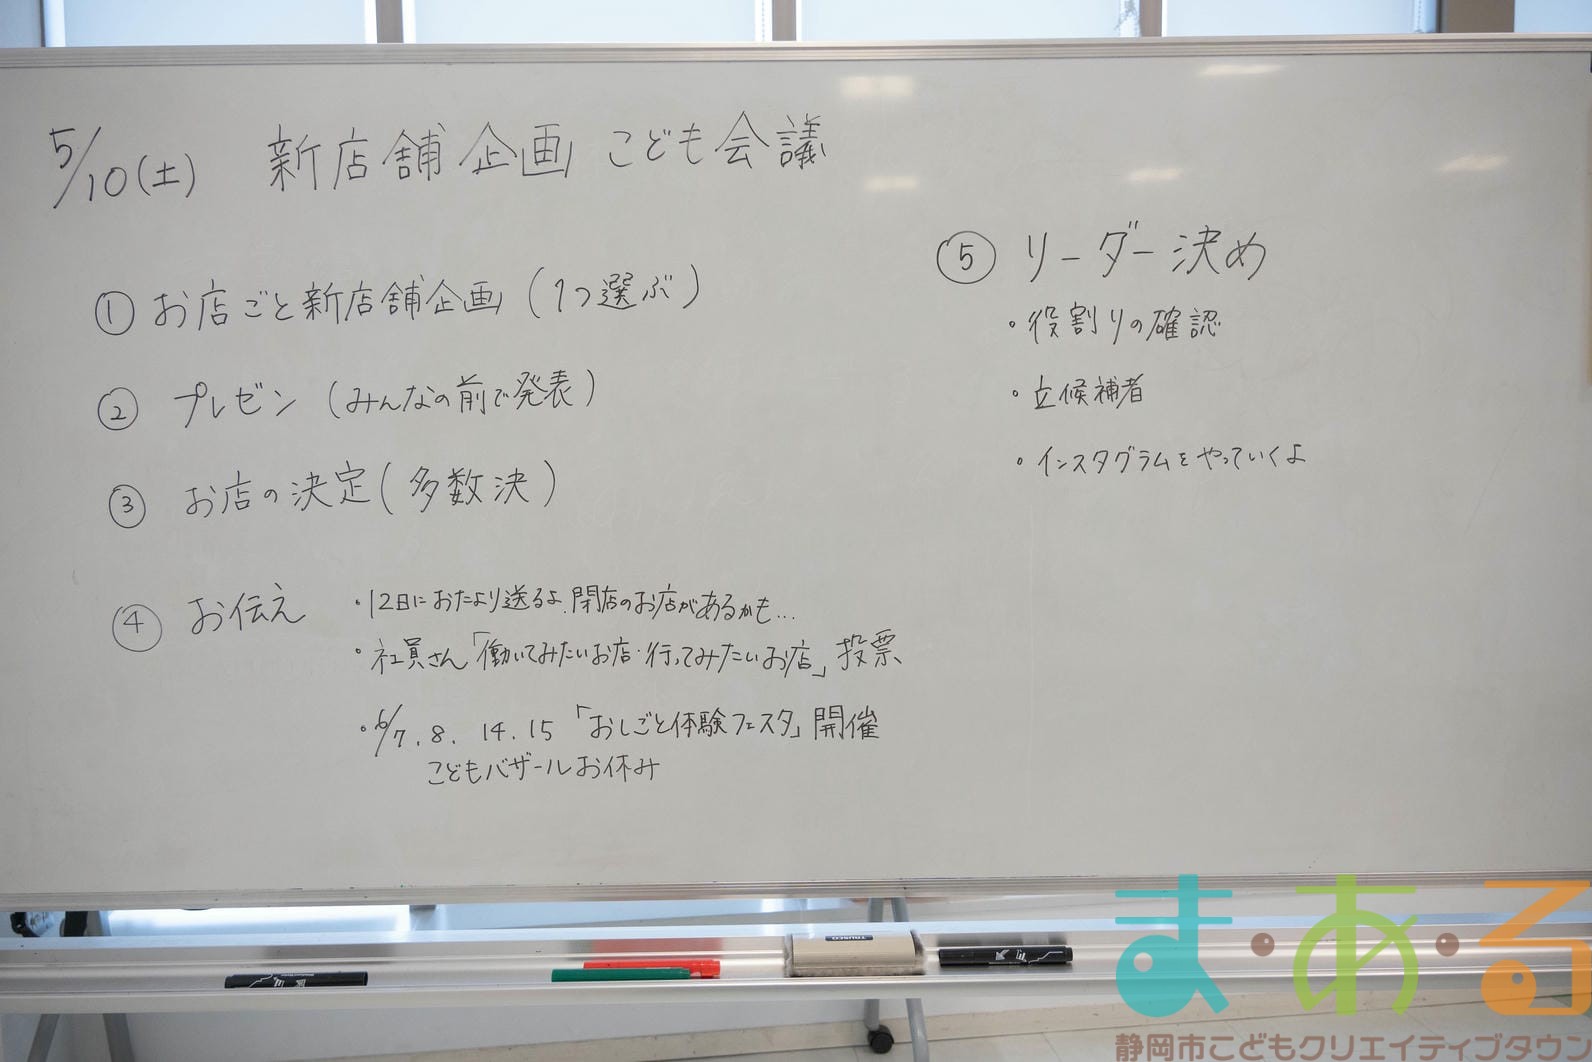 5/10(土) 新店舗企画 こども会議
① お店ごと新店舗企画(1つ選ぶ)
② プレゼン(みんなの前で発表)
③ お店の決定(多数決)
④ お伝え ・12日におたより送るよ.閉店のお店があるかも...
・社員さん「働いてみたいお店・行ってみたいお店」投票
・6/7.8.14.15「おしごと体験フェスタ」開催
こどもバザールお休み
⑤ リーダー決め
・役割りの確認
・立候補者
・インスタグラムをやっていくよ
TRUSCO
ま・あ・る
静岡市こどもクリエイティブタウン